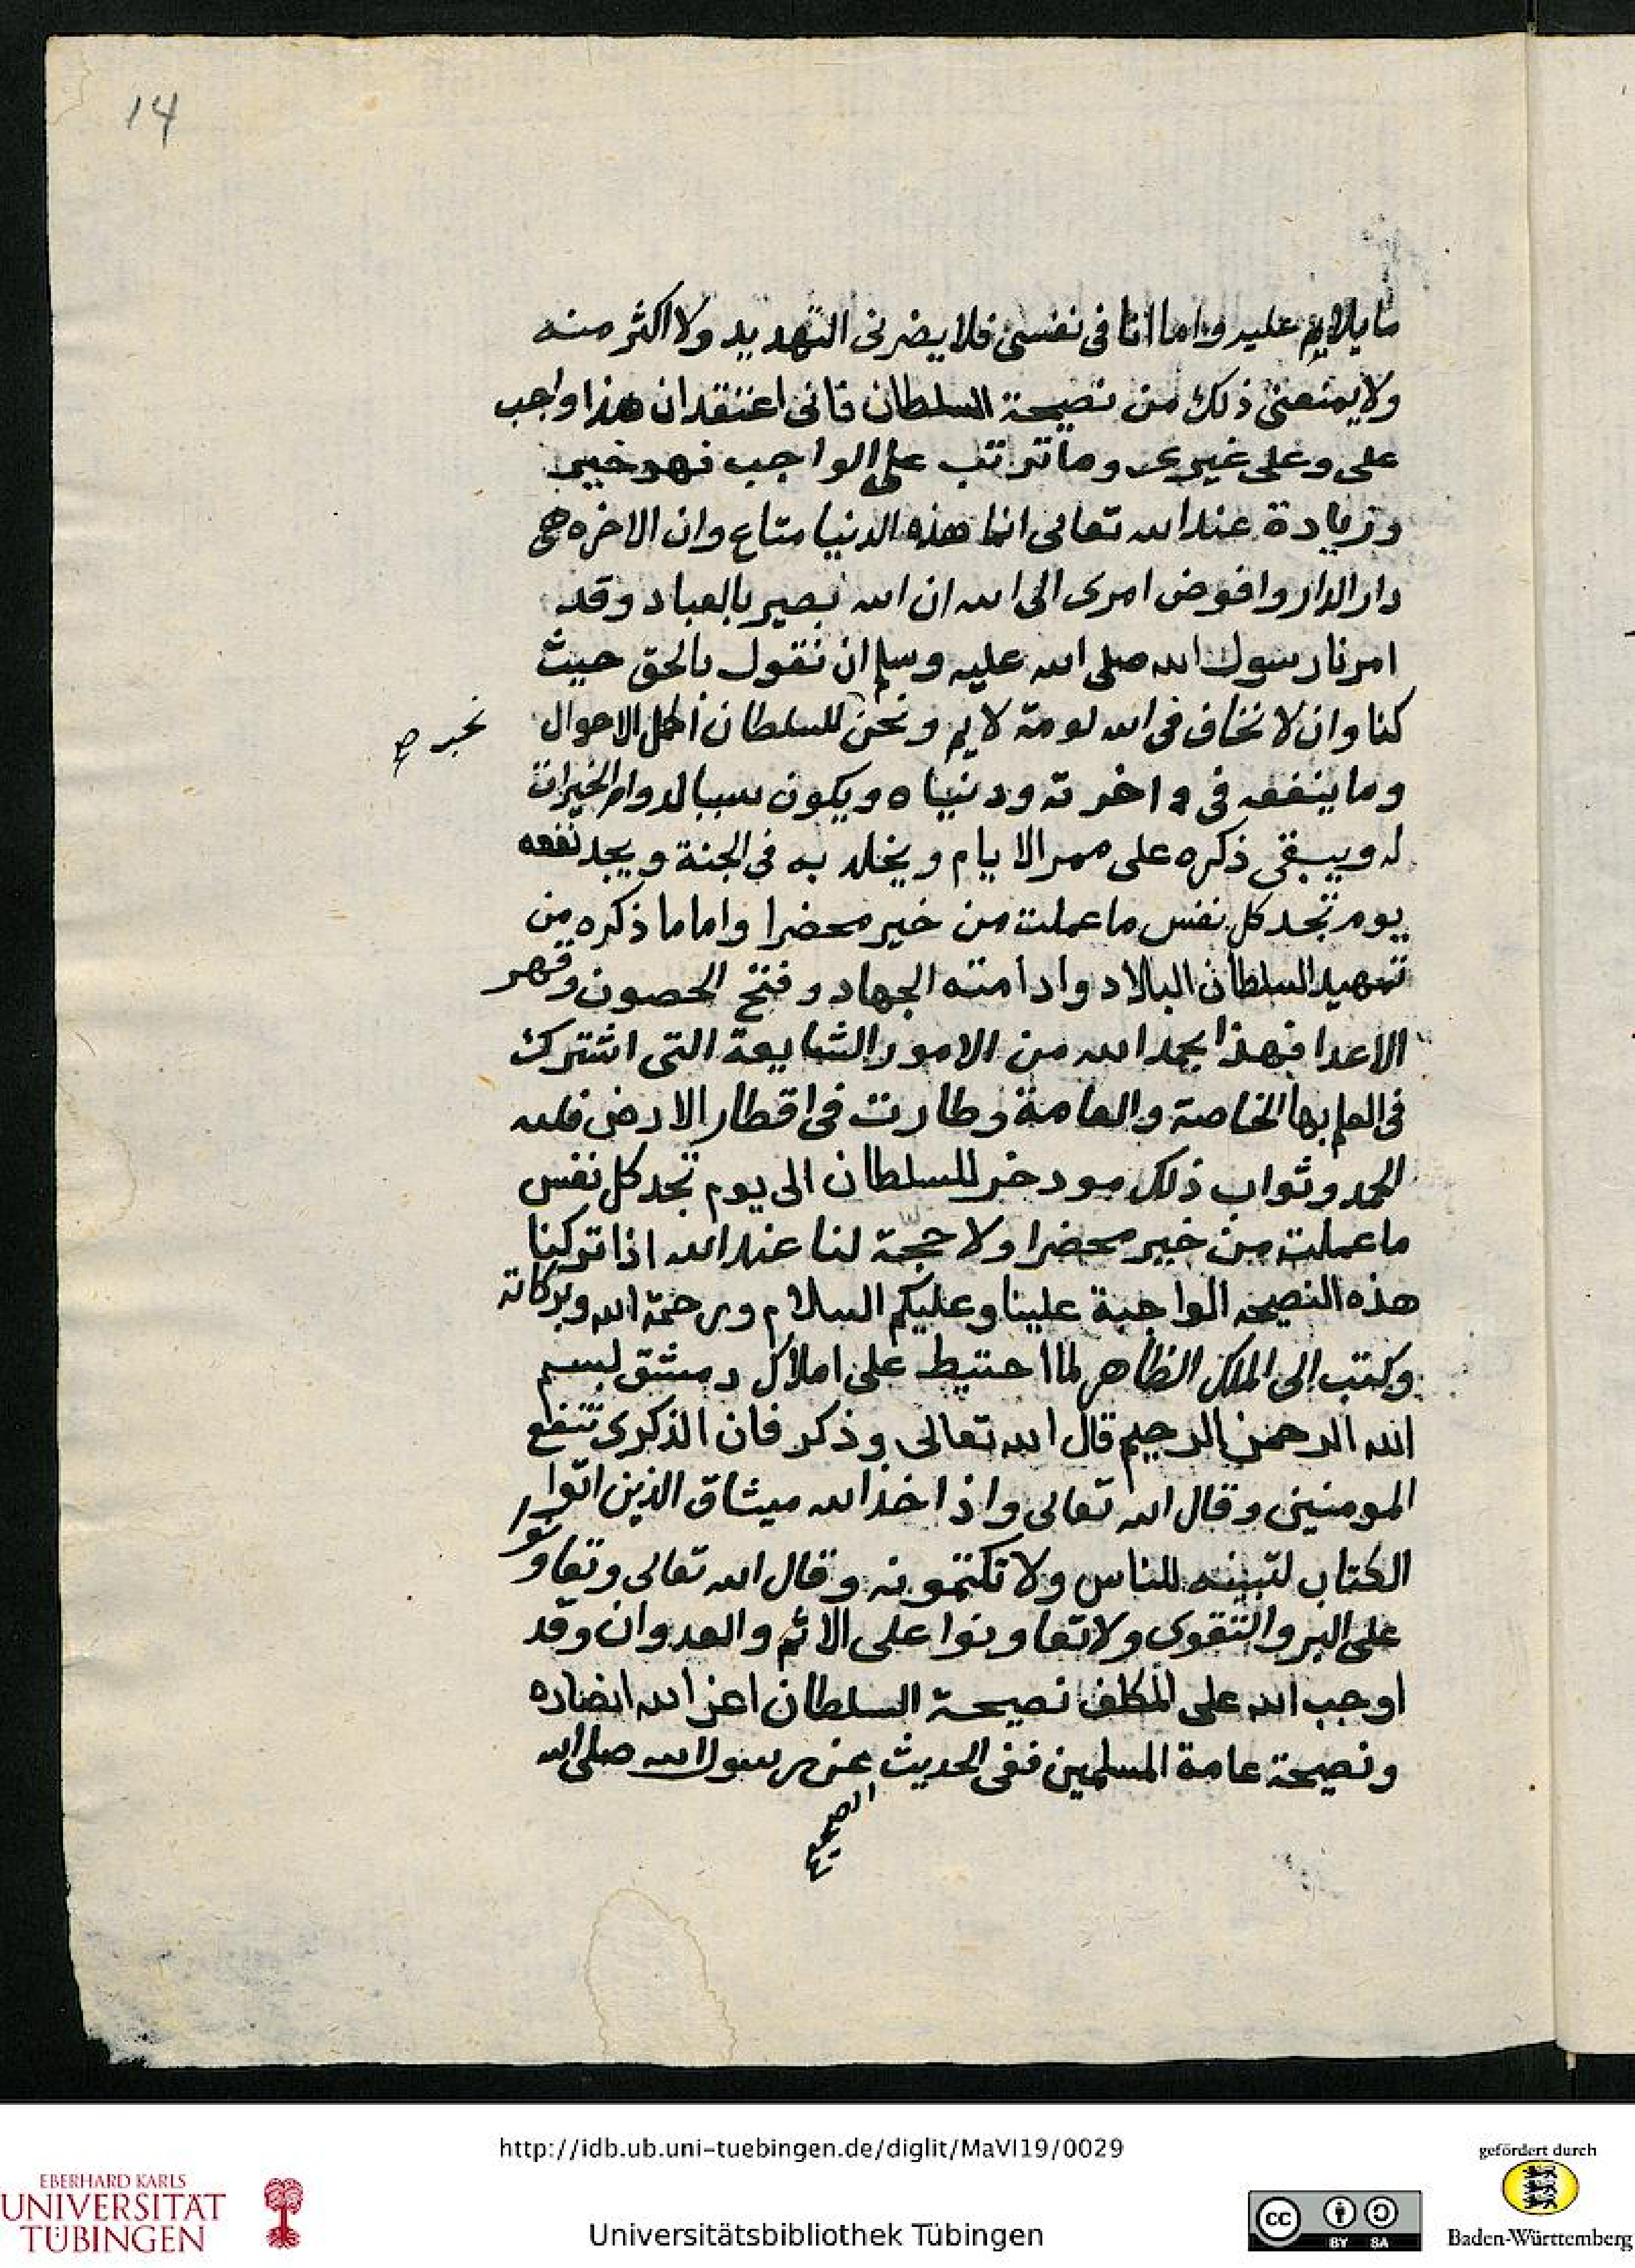 14
ما يلايم عليه واما انا في نفسي فلا يضرني التهديد ولا اكثر منه
ولا يمنعني ذلك من نصيحة السلطان فاني اعتقد ان هذا واجب
على وعلى غيرى وما ترتب على الواجب فهو خير
وزيادة عند الله تعالى انما هذه الدنيا متاع وان الاخره هي
دار الدار وافوض امرى الى الله ان الله بصير بالعباد وقد
امرنا رسول الله صلى الله عليه وسلم ان نقول بالحق حيث
كنا وان لا نخاف في الله لومة لايم ونحن للسلطان اكمل الاحوال
نحب صح
وما ينفعه في واخرته ودنياه ويكون سببا لدوام الخيرات
له ويبقى ذكره على ممر الايام ويخلد به في الجنة ويجد نفعه
يوم تجد كل نفس ما عملت من خير محضرا واما ما ذكره من
تمهيد السلطان البلاد وادامته الجهاد وفتح الحصون وقهر
الاعدا فهذا بحمد الله من الامور الشايعة التي اشترك
في العلم بها الخاصة والعامة وطارت في اقطار الارض فلله
الحمد وثواب ذلك مودخر للسلطان الى يوم تجد كل نفس
ما عملت من خير محضرا ولا حجة لنا عند الله اذا تركنا
هذه النصيحه الواجبة علينا وعليكم السلام ورحمة الله وبركاته
وكتب الى الملك الظاهر لما احتيط على املاك دمشق بسم
الله الرحمن الرحيم قال الله تعالى وذكر فان الذكرى تنفع
المومنين وقال الله تعالى واذ اخذ الله ميثاق الذين اتوا
الكتاب لتبيننه للناس ولا تكتمونه وقال الله تعالى وتعاونوا
على البر والتقوى ولا تعاونوا على الاثم والعدوان وقد
اوجب الله على المكلف نصيحة السلطان اعز الله انصاره
ونصيحة عامة المسلمين ففى الحديث عن رسول الله صلى الله
الصحيح
http://idb.ub.uni-tuebingen.de/diglit/MaVI19/0029
EBERHARD KARLS
UNIVERSITÄT
TÜBINGEN
Universitätsbibliothek Tübingen
CC BY SA
gefördert durch
Baden-Württemberg